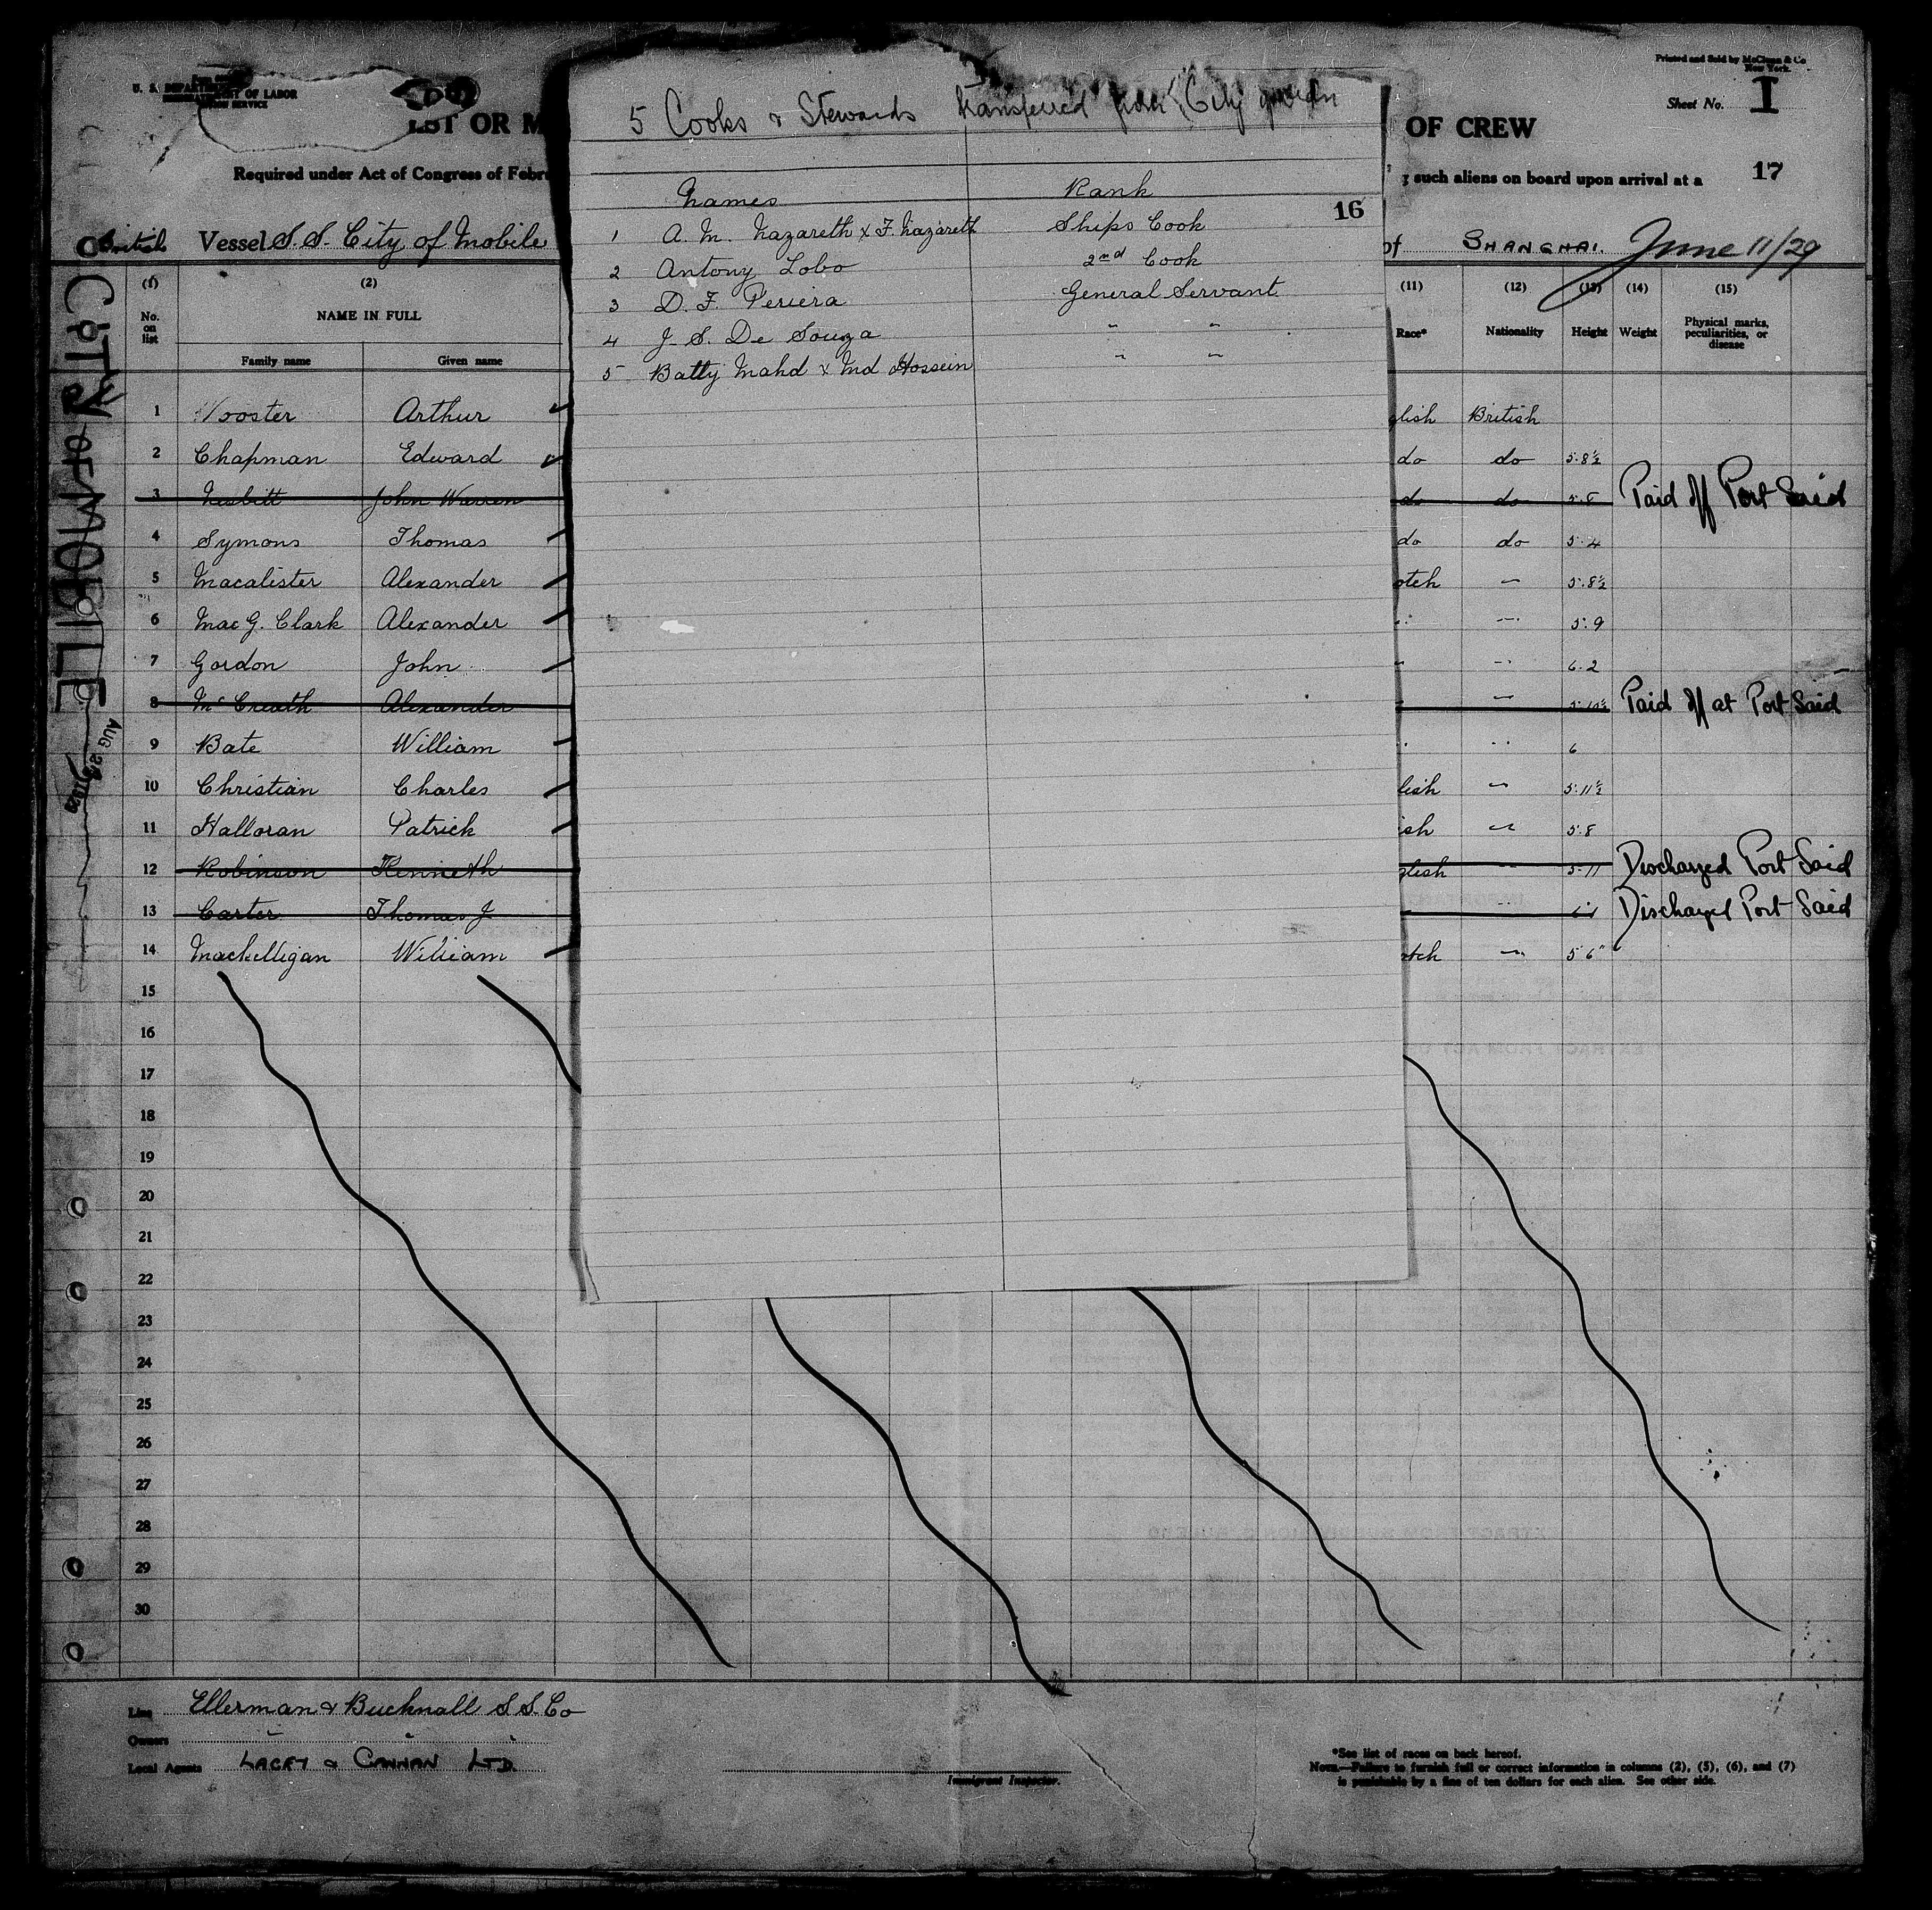 Printed and Sold by McClunn & Co
New York.
Sheet No. I
U. S. DEPARTMENT OF LABOR
SERVICE
LIST OR M
OF CREW
Required under Act of Congress of Febru
such aliens on board upon arrival at a
17
British Vessel S.S. City of Mobile
of SHANGHAI. June 11/29
5 Cooks & Stewards transferred from City
Names Rank
16
1 A. M. Nazareth x F. Nazareth Ships Cook
2 Antony Lobo 2nd Cook
3 D. F. Periera General Servant
4 J. S. De Souza " "
5 Batty Mahd x Md Hossein " "
CITY OF MOBILE
AUG 22 1929
(1) (2) (11) (12) (13) (14) (15)
No. on list NAME IN FULL Race* Nationality Height Weight Physical marks, peculiarities, or disease
Family name Given name
1 Wooster Arthur glish British
2 Chapman Edward do do 5.8½
3 Nesbitt John Warren do do 5.8 Paid off Port Said
4 Symons Thomas do do 5.4
5 Macalister Alexander otch " 5.8½
6 Mac G. Clark Alexander " " 5.9
7 Gordon John " " 6.2
8 McCreath Alexander " " 5.10½ Paid off at Port Said
9 Bate William " " 6
10 Christian Charles lish " 5.11½
11 Halloran Patrick ish " 5.8
12 Robinson Kenneth glish " 5.11 Discharged Port Said
13 Carter Thomas J. " " 6.1 Discharged Port Said
14 Mackelligan William otch " 5 6"
15
16
17
18
19
20
21
22
23
24
25
26
27
28
29
30
Line Ellerman & Bucknall S.S. Co
Owners
Local Agents LACEY & CANNAN LTD.
Immigrant Inspector.
*See list of races on back hereof.
NOTE.—Failure to furnish full or correct information in columns (2), (5), (6), and (7)
is punishable by a fine of ten dollars for each alien. See other side.